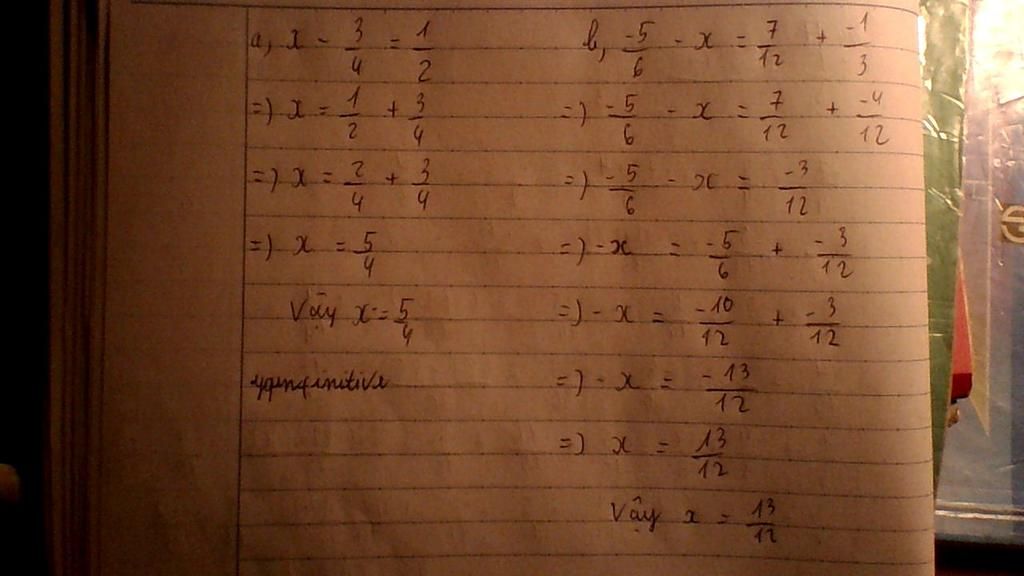 a, x - 3/4 = 1/2
=) x = 1/2 + 3/4
=) x = 2/4 + 3/4
=) x = 5/4
Vậy x = 5/4
b, -5/6 - x = 7/12 + -1/3
=) -5/6 - x = 7/12 + -4/12
=) -5/6 - x = -3/12
=) -x = -5/6 + -3/12
=) -x = -10/12 + -3/12
=) -x = -13/12
=) x = 13/12
Vậy x = 13/12